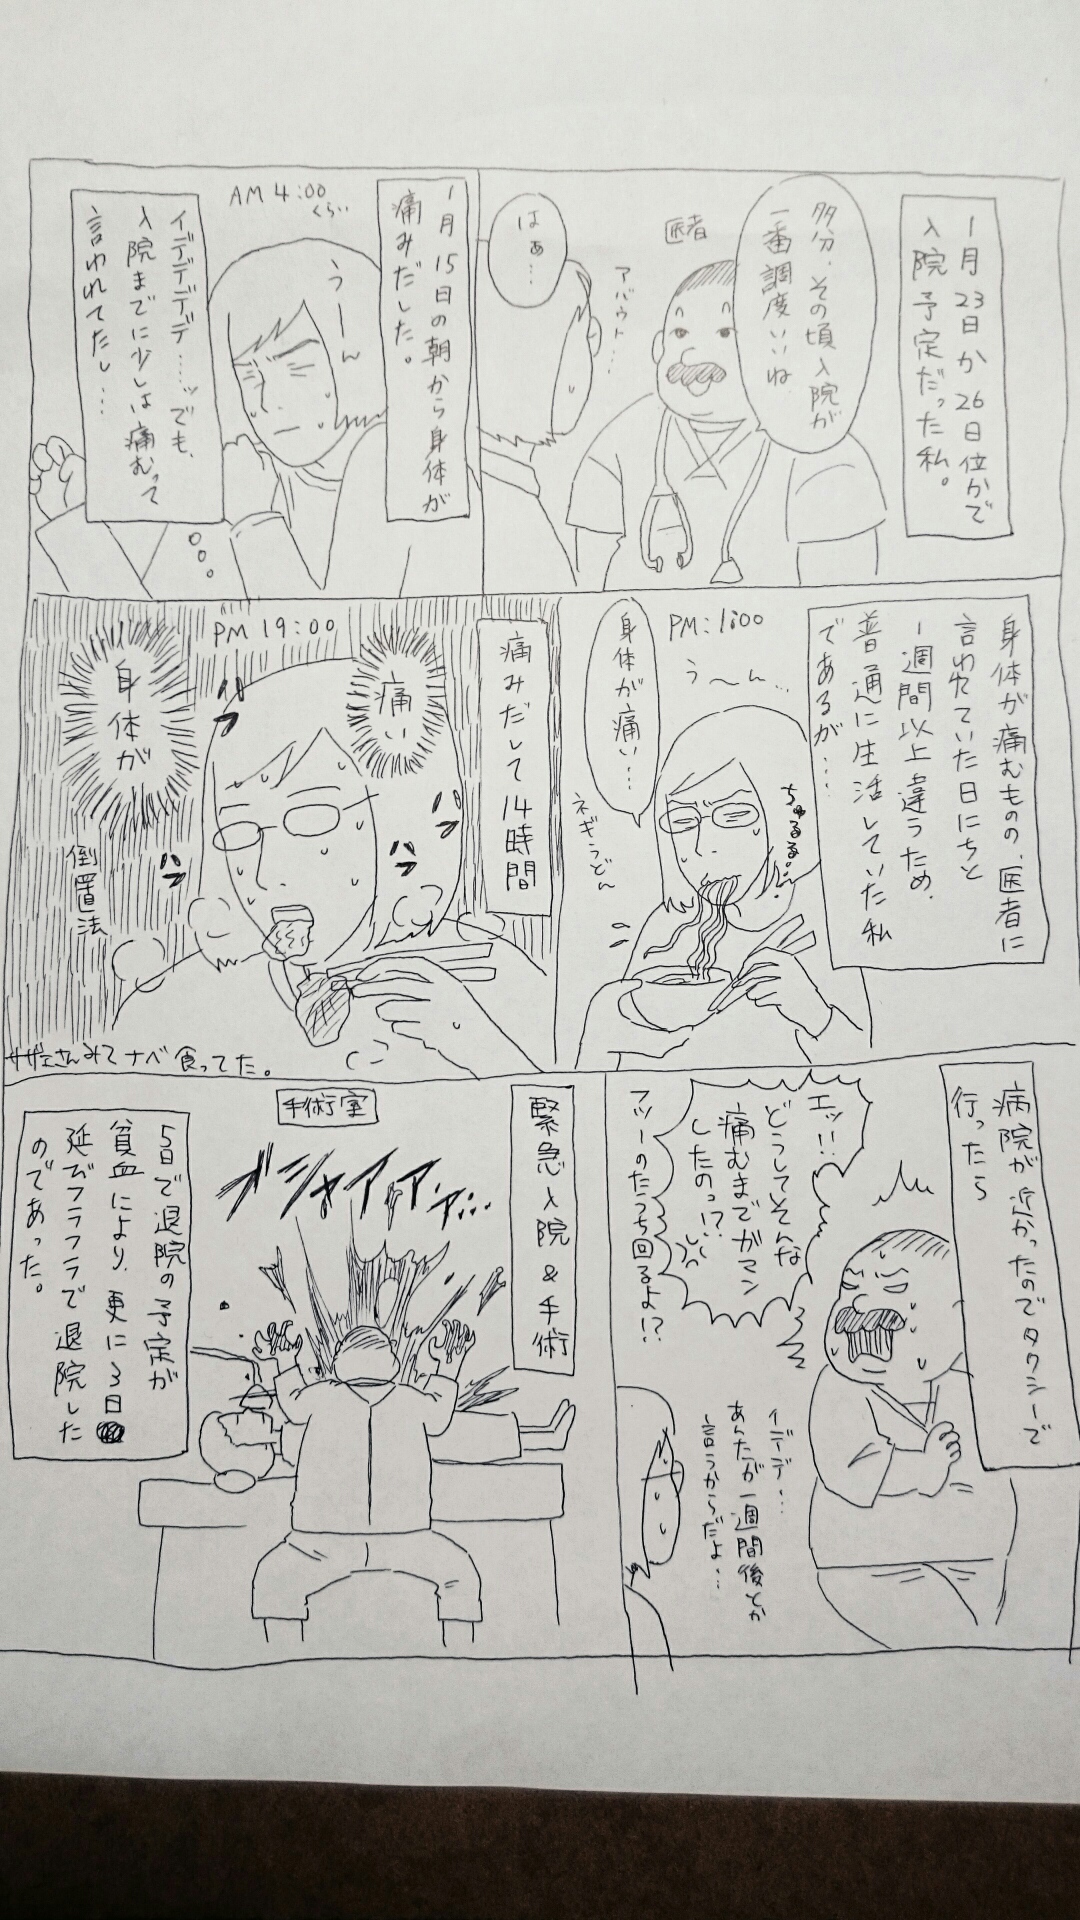 1月23日か26日位かで
入院予定だった私。
多分、その頃入院が
一番調度いいね
医者
アバウト…
はぁ…
1月15日の朝から身体が
痛みだした。
AM 4:00
くらい
うーん
イデデデデ……ッでも、
入院までに少しは痛むって
言われてたし…
身体が痛むものの、医者に
言われていた日にちと
1週間以上違うため、
普通に生活していた私
であるが…
PM:1:00
う〜ん…
身体が痛い…
ちゅるる…
ネギうどん
痛みだして14時間
PM 19:00
痛い
身体が
倒置法
サザエさんみてナベ食ってた。
病院が近かったのでタクシーで
行ったら
エッ!!
どうしてそんな
痛むまでガマン
したのっ!?
フツーのたうち回るよ!?
イデデ…
あんたが一週間後とか
言うからだよ…
緊急入院&手術
手術室
ブシャァァァァ…
5日で退院の予定が
貧血により、更に3日
延びフラフラで退院した
のであった。